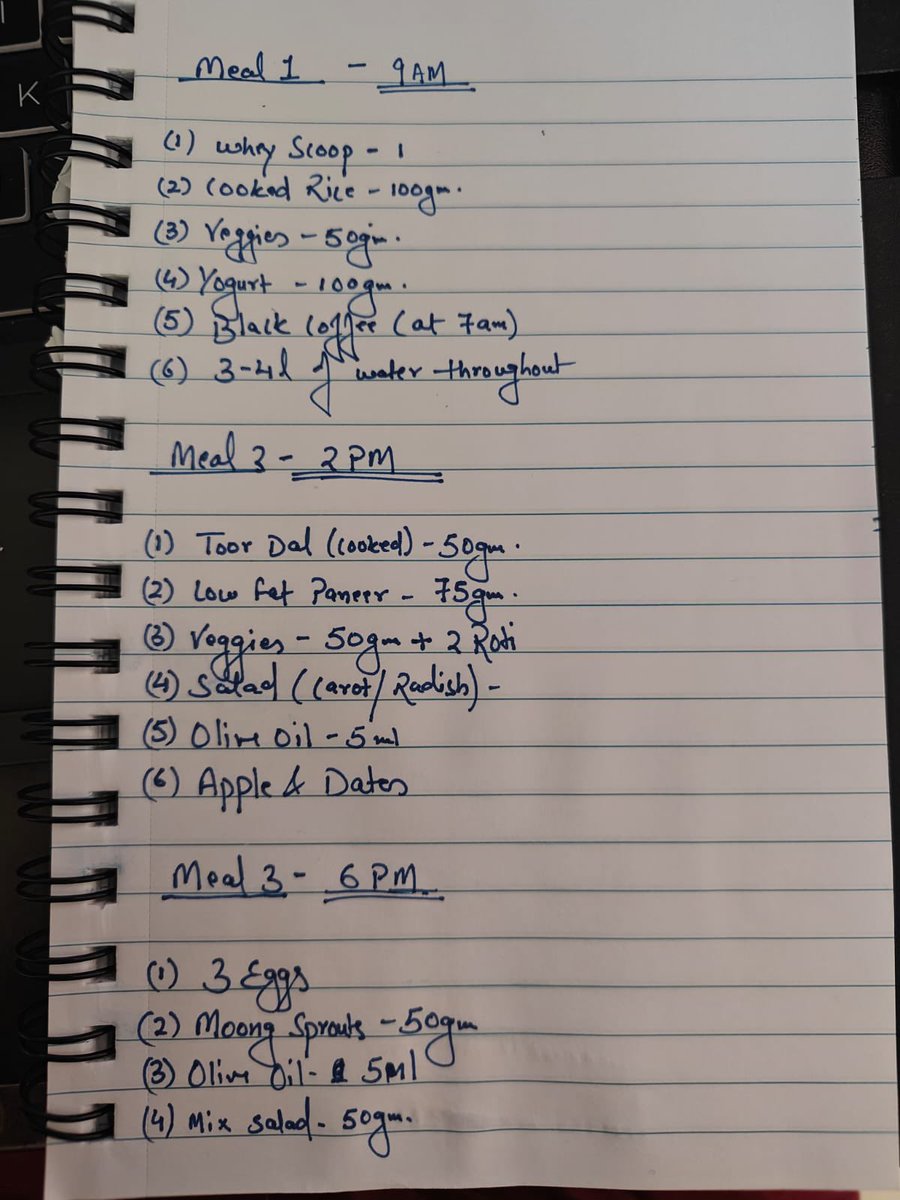 Meal 1 - 9AM
(1) Whey Scoop - 1
(2) Cooked Rice - 100gm.
(3) Veggies - 50gm.
(4) Yogurt - 100gm.
(5) Black Coffee (at 7am)
(6) 3-4l of water throughout
Meal 3 - 2PM
(1) Toor Dal (cooked) - 50gm.
(2) Low fat Paneer - 75gm.
(3) Veggies - 50gm + 2 Roti
(4) Salad (Carot/Radish) -
(5) Olive Oil - 5ml
(6) Apple & Dates
Meal 3 - 6PM
(1) 3 Eggs
(2) Moong Sprouts - 50gm
(3) Olive Oil - 5ml
(4) Mix salad - 50gm.
K